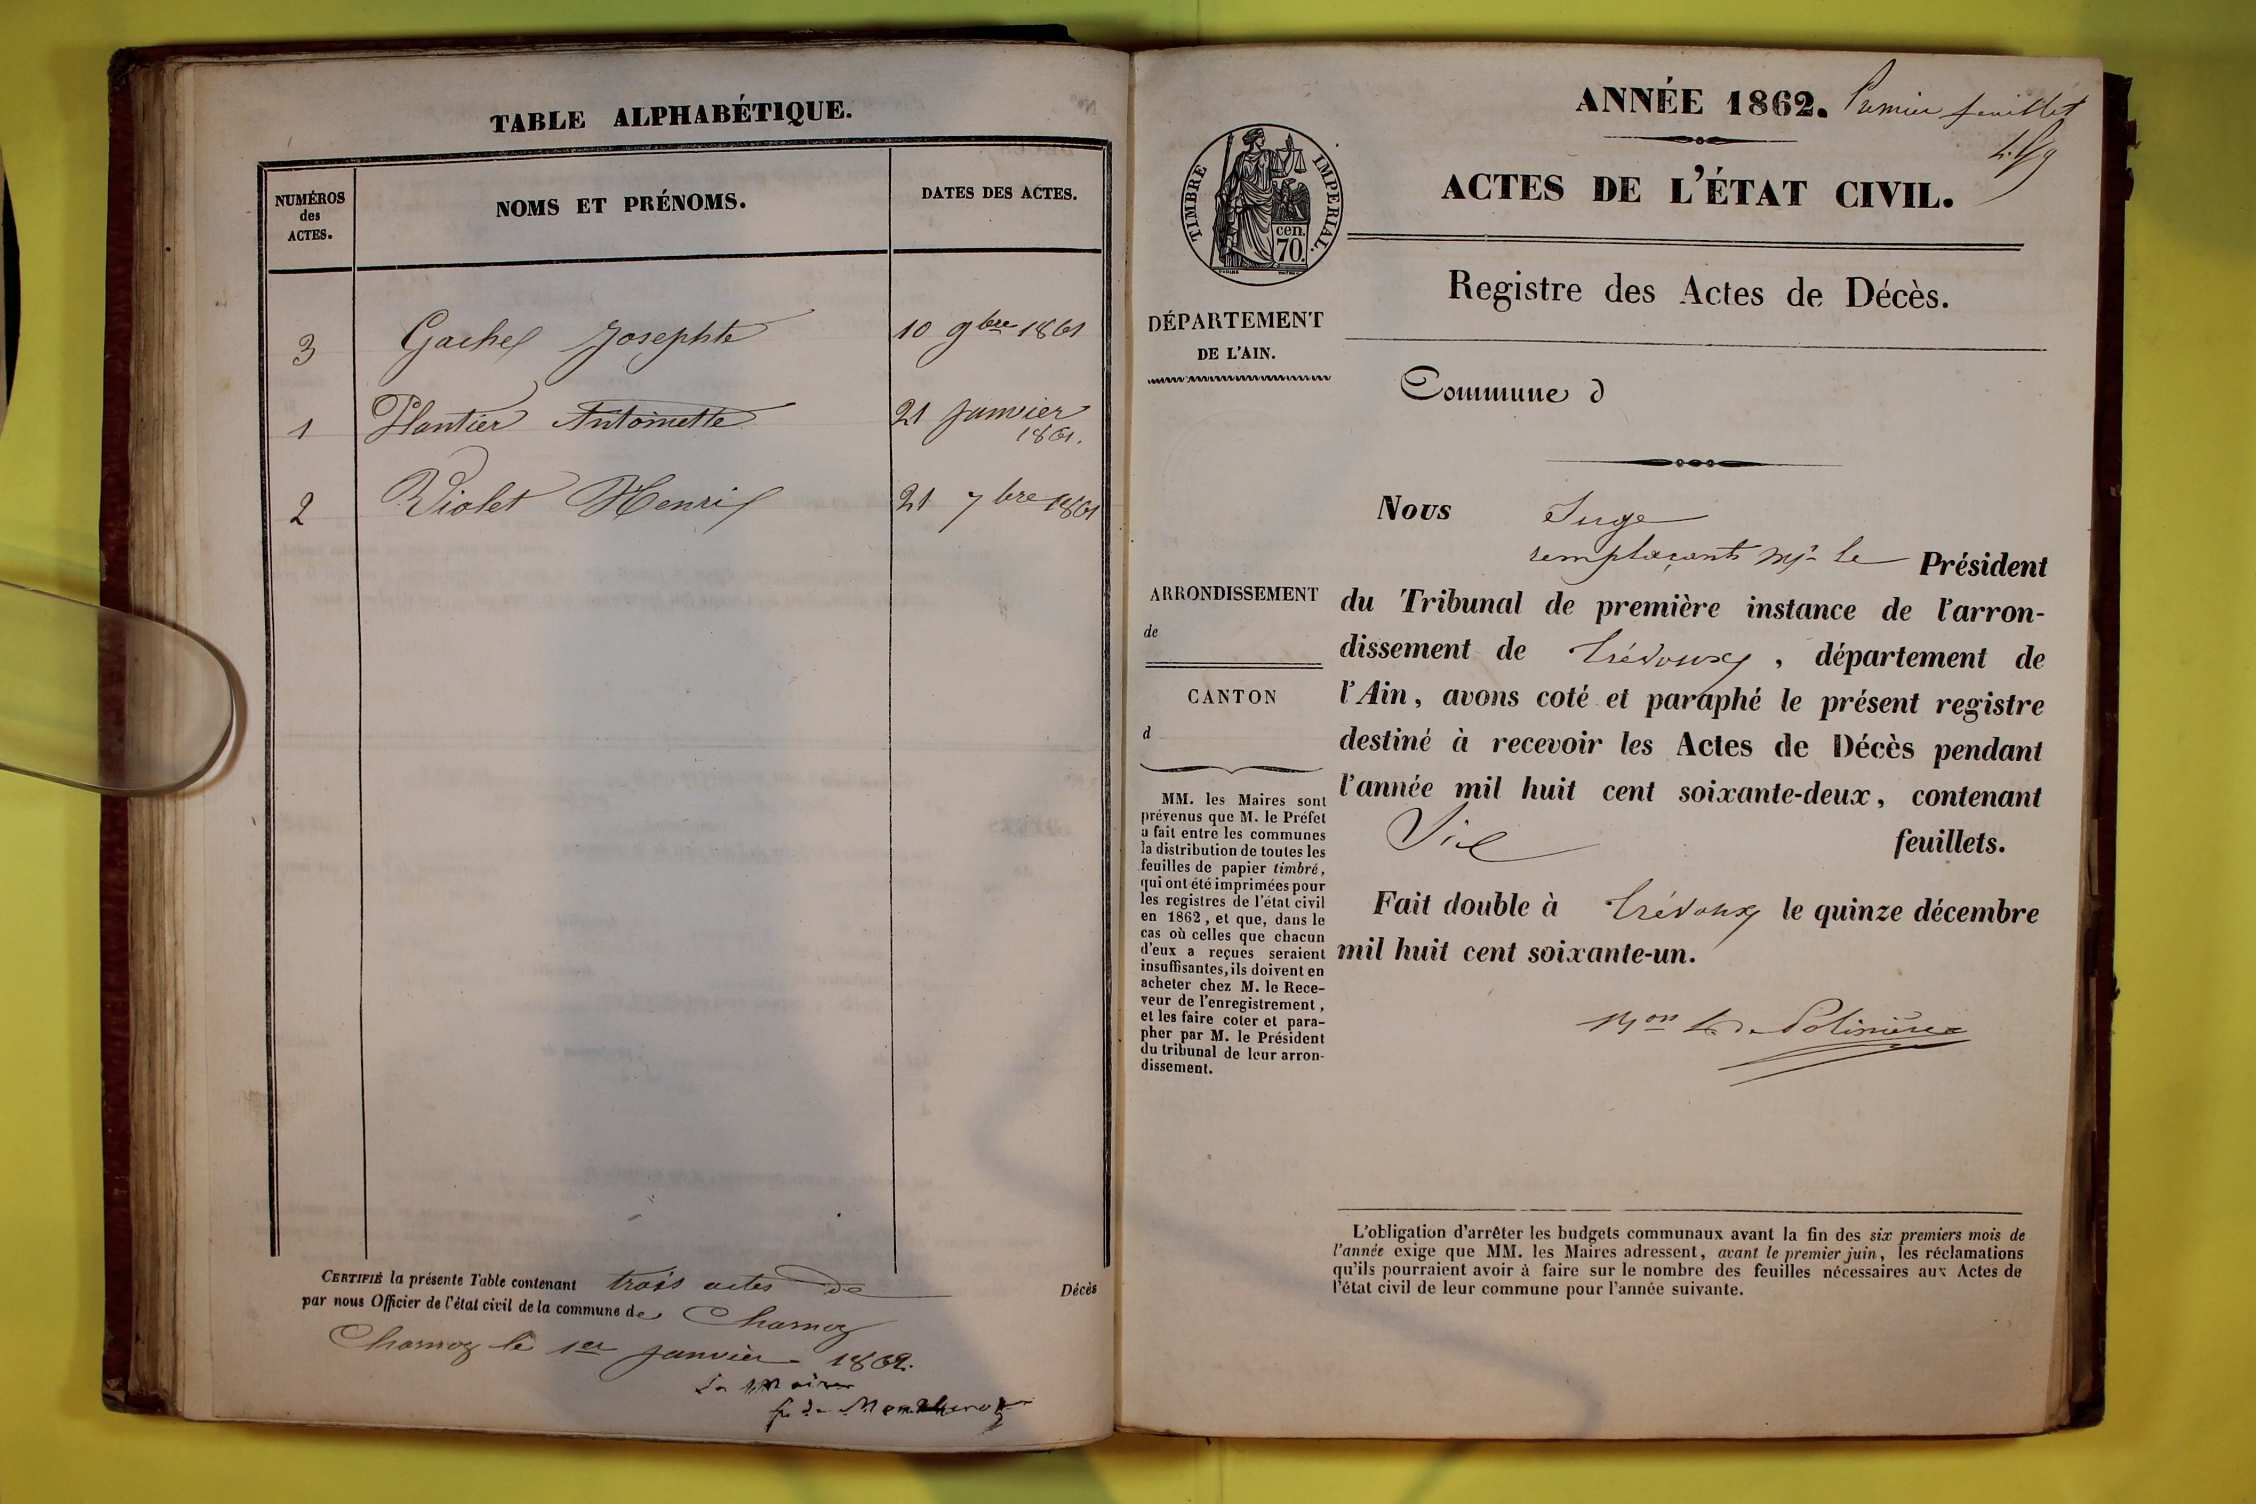 TABLE ALPHABÉTIQUE.
NUMÉROS
des
ACTES.
NOMS ET PRÉNOMS.
DATES DES ACTES.
3 Gachet Josephte 10 9bre 1861
1 Plantier Antoinette 21 Janvier
1861.
2 Violet Henri 21 7bre 1861
CERTIFIÉ la présente Table contenant trois actes de Décès
par nous Officier de l'état civil de la commune de Charnoz
Charnoz le 1er Janvier 1862.
Le Maire
ANNÉE 1862. Premier feuillet
ACTES DE L'ÉTAT CIVIL.
TIMBRE IMPERIAL.
cen.
70.
Registre des Actes de Décès.
DÉPARTEMENT
DE L'AIN.
Commune d
Nous Juge
remplaçant Mr le Président
du Tribunal de première instance de l'arron-
dissement de Trévoux, département de
l'Ain, avons coté et paraphé le présent registre
destiné à recevoir les Actes de Décès pendant
l'année mil huit cent soixante-deux, contenant
Six feuillets.
Fait double à Trévoux le quinze décembre
mil huit cent soixante-un.
ARRONDISSEMENT
de
CANTON
d
MM. les Maires sont
prévenus que M. le Préfet
a fait entre les communes
la distribution de toutes les
feuilles de papier timbré,
qui ont été imprimées pour
les registres de l'état civil
en 1862, et que, dans le
cas où celles que chacun
d'eux a reçues seraient
insuffisantes, ils doivent en
acheter chez M. le Rece-
veur de l'enregistrement,
et les faire coter et para-
pher par M. le Président
du tribunal de leur arron-
dissement.
L'obligation d'arrêter les budgets communaux avant la fin des six premiers mois de
l'année exige que MM. les Maires adressent, avant le premier juin, les réclamations
qu'ils pourraient avoir à faire sur le nombre des feuilles nécessaires aux Actes de
l'état civil de leur commune pour l'année suivante.